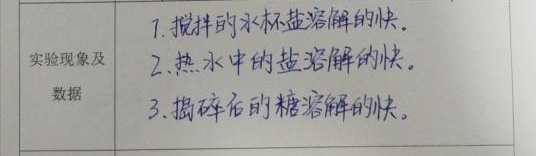 实验现象及
数据
1.搅拌的水杯盐溶解的快。
2.热水中的盐溶解的快。
3.捣碎后的糖溶解的快。